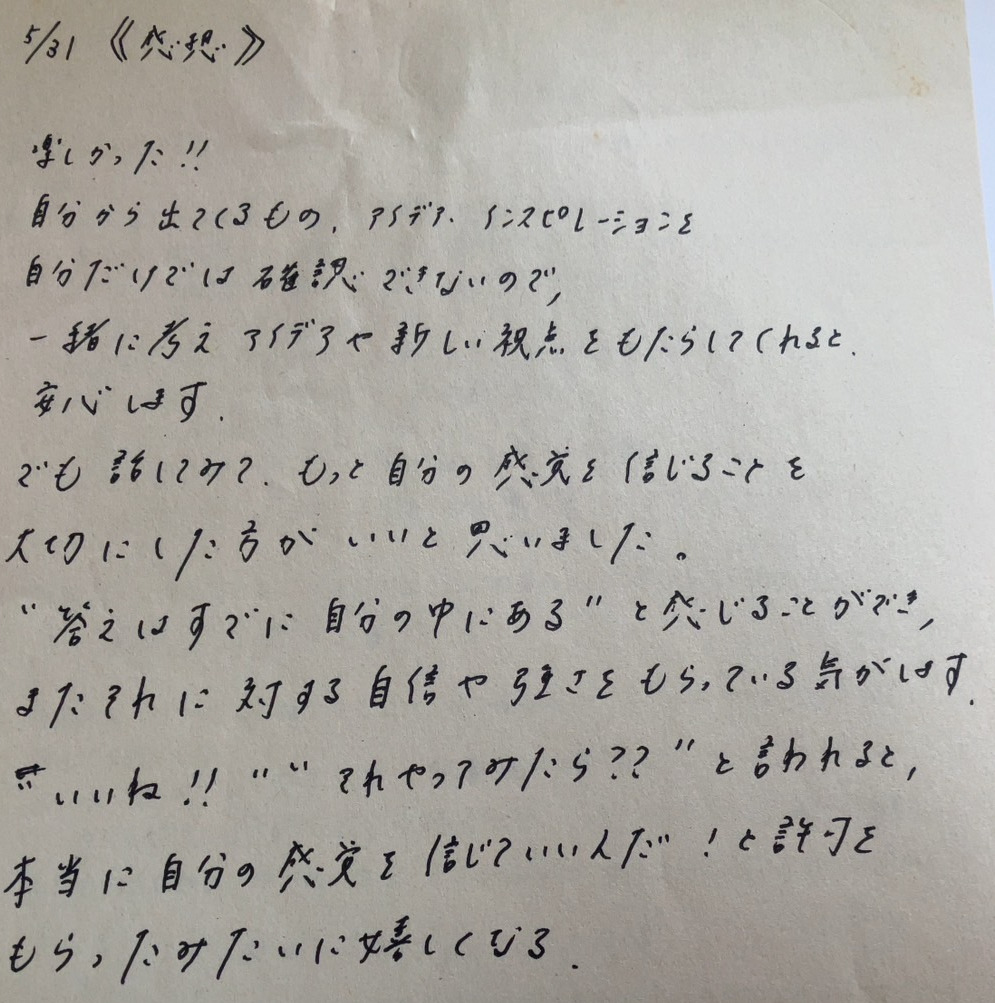 5/31 《感想》
楽しかった!!
自分から出てくるもの、アイデア、インスピレーションを
自分だけでは確認できないので、
一緒に考えアイデアや新しい視点をもたらしてくれると、
安心します。
でも話してみて、もっと自分の感覚を信じることを
大切にした方がいいと思いました。
"答えはすでに自分の中にある"と感じることができ、
またそれに対する自信や強さをもらっている気がします。
"いいね!!""それやってみたら??"と言われると、
本当に自分の感覚を信じていいんだ!と許可を
もらったみたいに嬉しくなる。